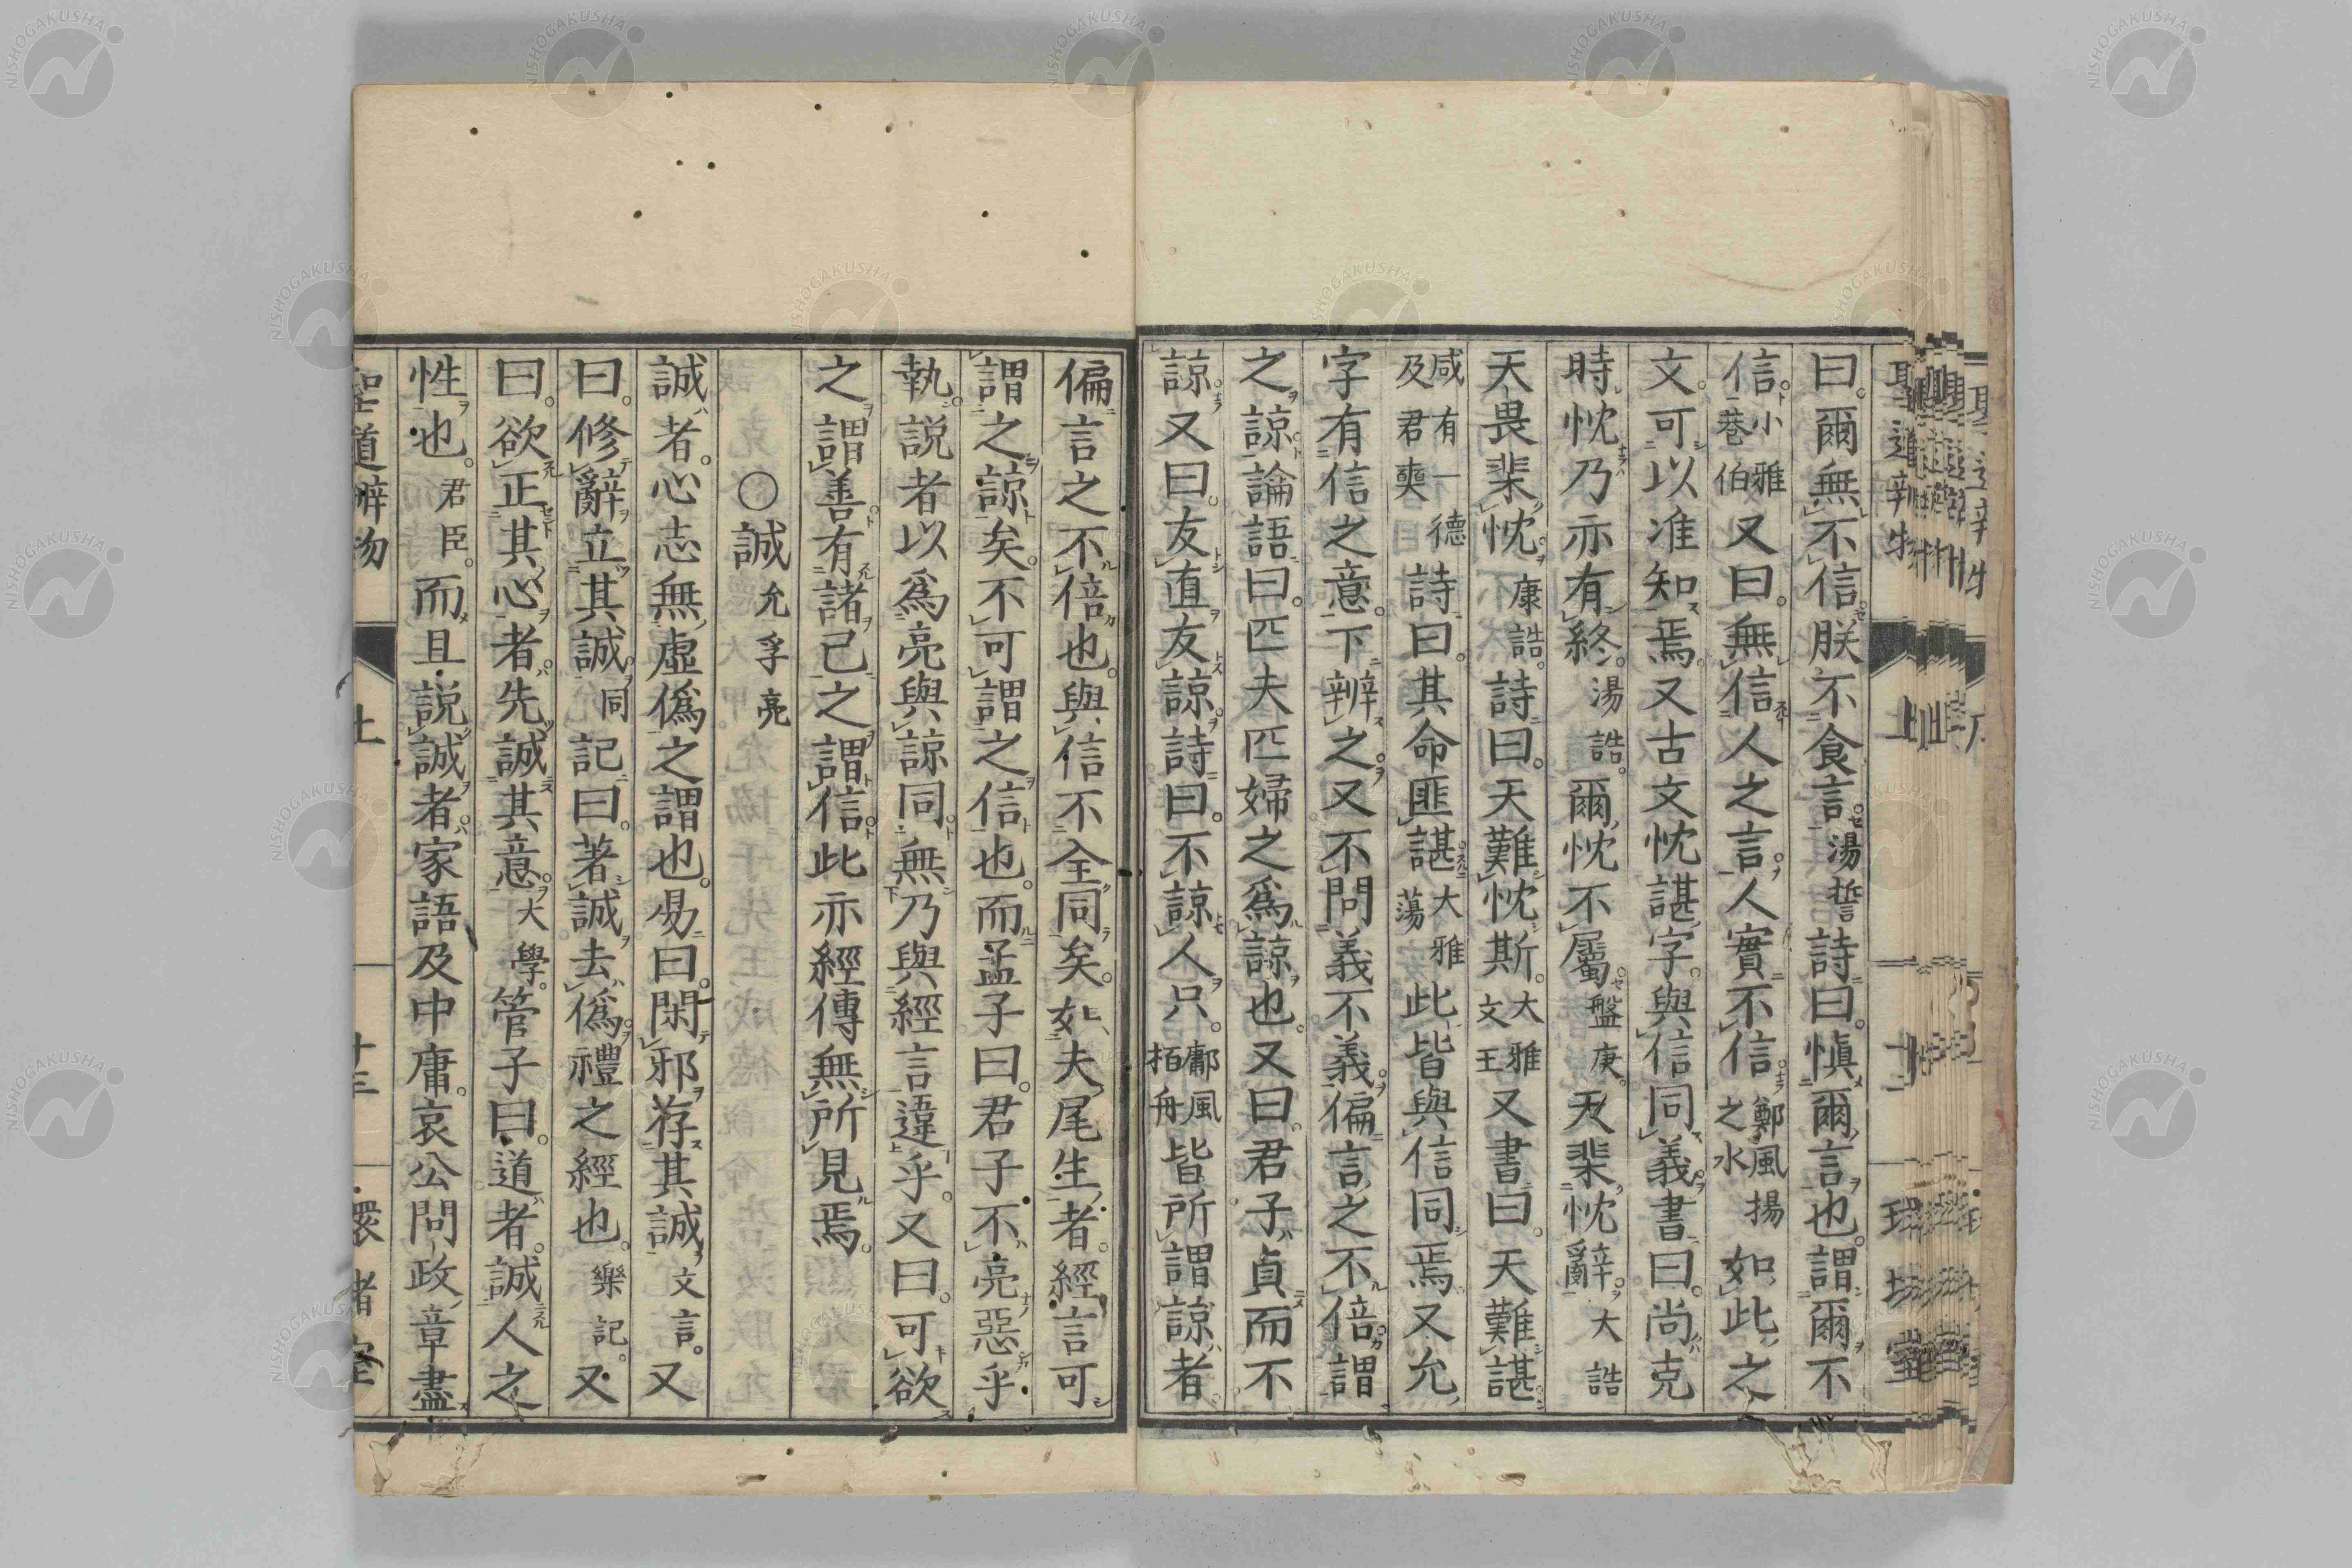 曰爾無不信朕不食言湯誓詩曰慎爾言也謂爾不
信小雅巷伯又曰無信人之言人實不信鄭風揚之水如此之
文可以准知焉又古文忱諶字與信同義書曰尚克
時忱乃亦有終湯誥爾忱不屬盤庚天棐忱辭大誥
天畏棐忱康誥詩曰天難忱斯大雅文王又書曰天難諶
咸有一德及君奭詩曰其命匪諶大雅蕩此皆與信同焉又允
字有信之意下辨之又不問義不義偏言之不倍謂
之諒論語曰匹夫匹婦之爲諒也又曰君子貞而不
諒又曰友直友諒詩曰不諒人只鄘風柏舟皆所謂諒者
偏言之不倍也與信不全同矣如夫尾生者經言可
謂之諒矣不可謂之信也而孟子曰君子不亮惡乎
執説者以爲亮與諒同無乃與經言違乎又曰可欲
之謂善有諸己之謂信此亦經傳無所見焉
○誠允孚亮
誠者心志無虛僞之謂也易曰閑邪存其誠文言又
曰修辭立其誠同記曰著誠去僞禮之經也樂記又
曰欲正其心者先誠其意大學管子曰道者誠人之
性也君臣而且説誠者家語及中庸哀公問政章盡
聖道辨物 上 十三 環堵室
NISHOGAKUSHA